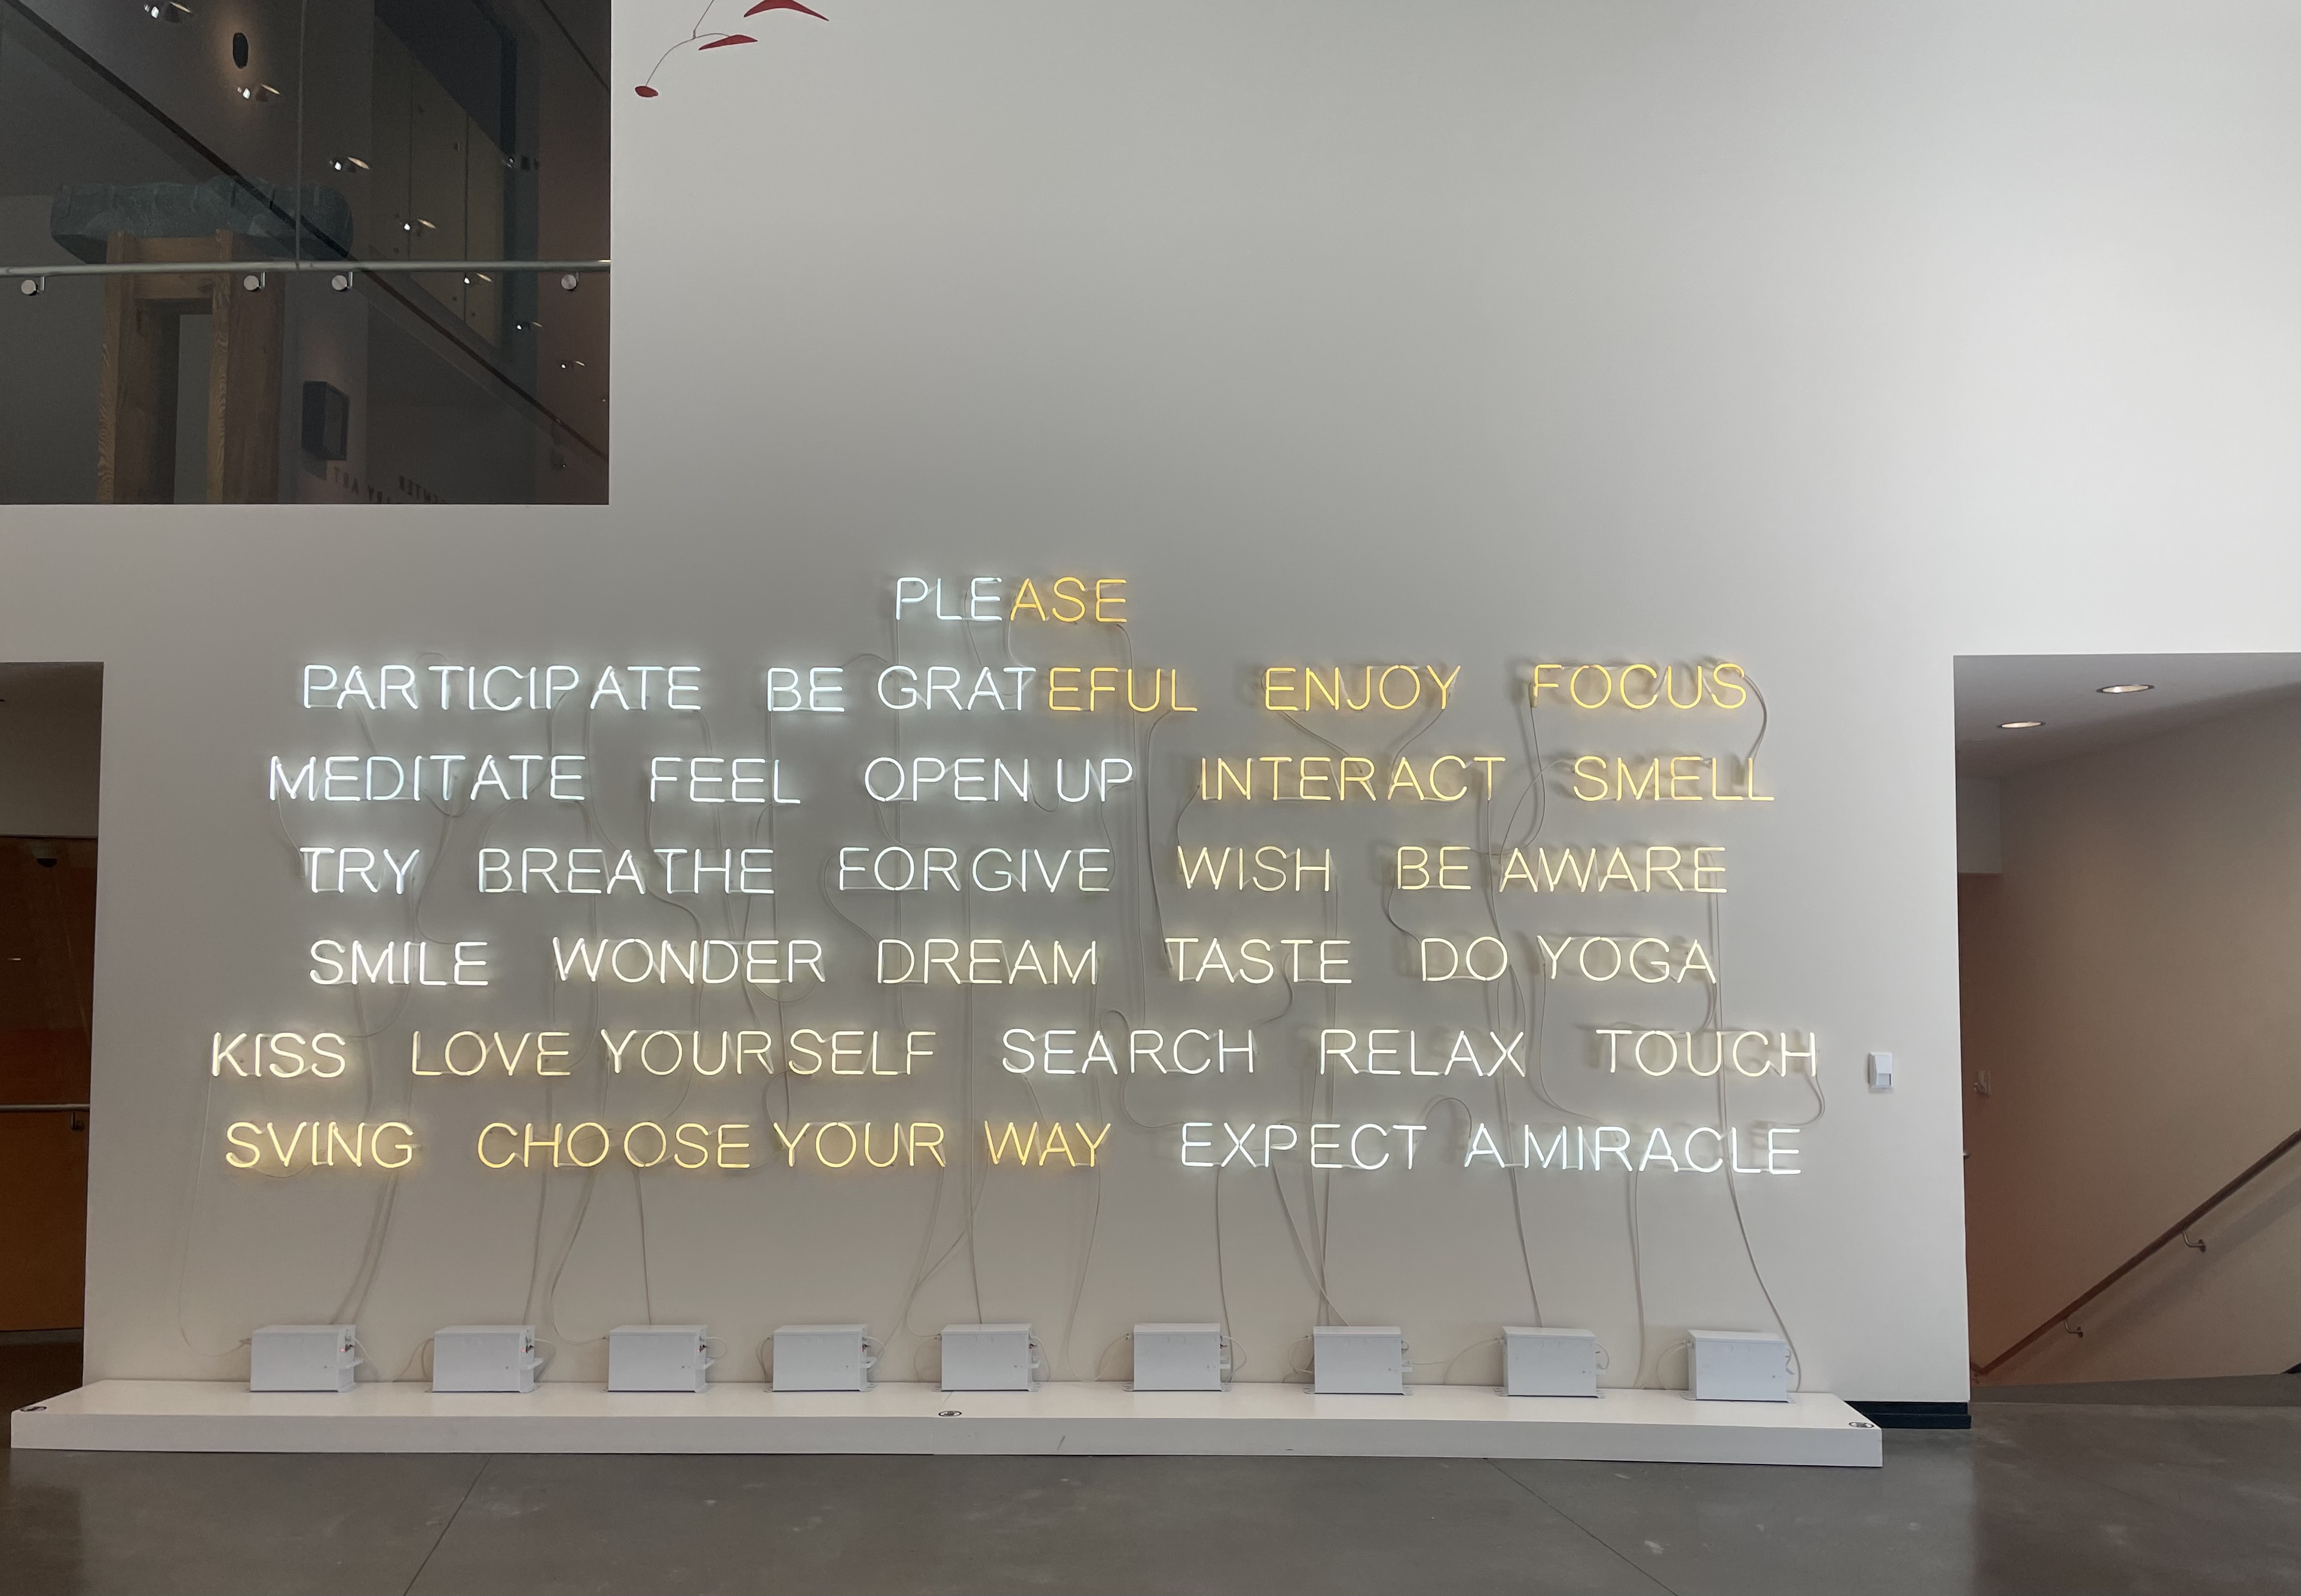 PLEASE
PARTICIPATE BE GRATEFUL ENJOY FOCUS
MEDITATE FEEL OPEN UP INTERACT SMELL
TRY BREATHE FORGIVE WISH BE AWARE
SMILE WONDER DREAM TASTE DO YOGA
KISS LOVE YOURSELF SEARCH RELAX TOUCH
SVING CHOOSE YOUR WAY EXPECT A MIRACLE